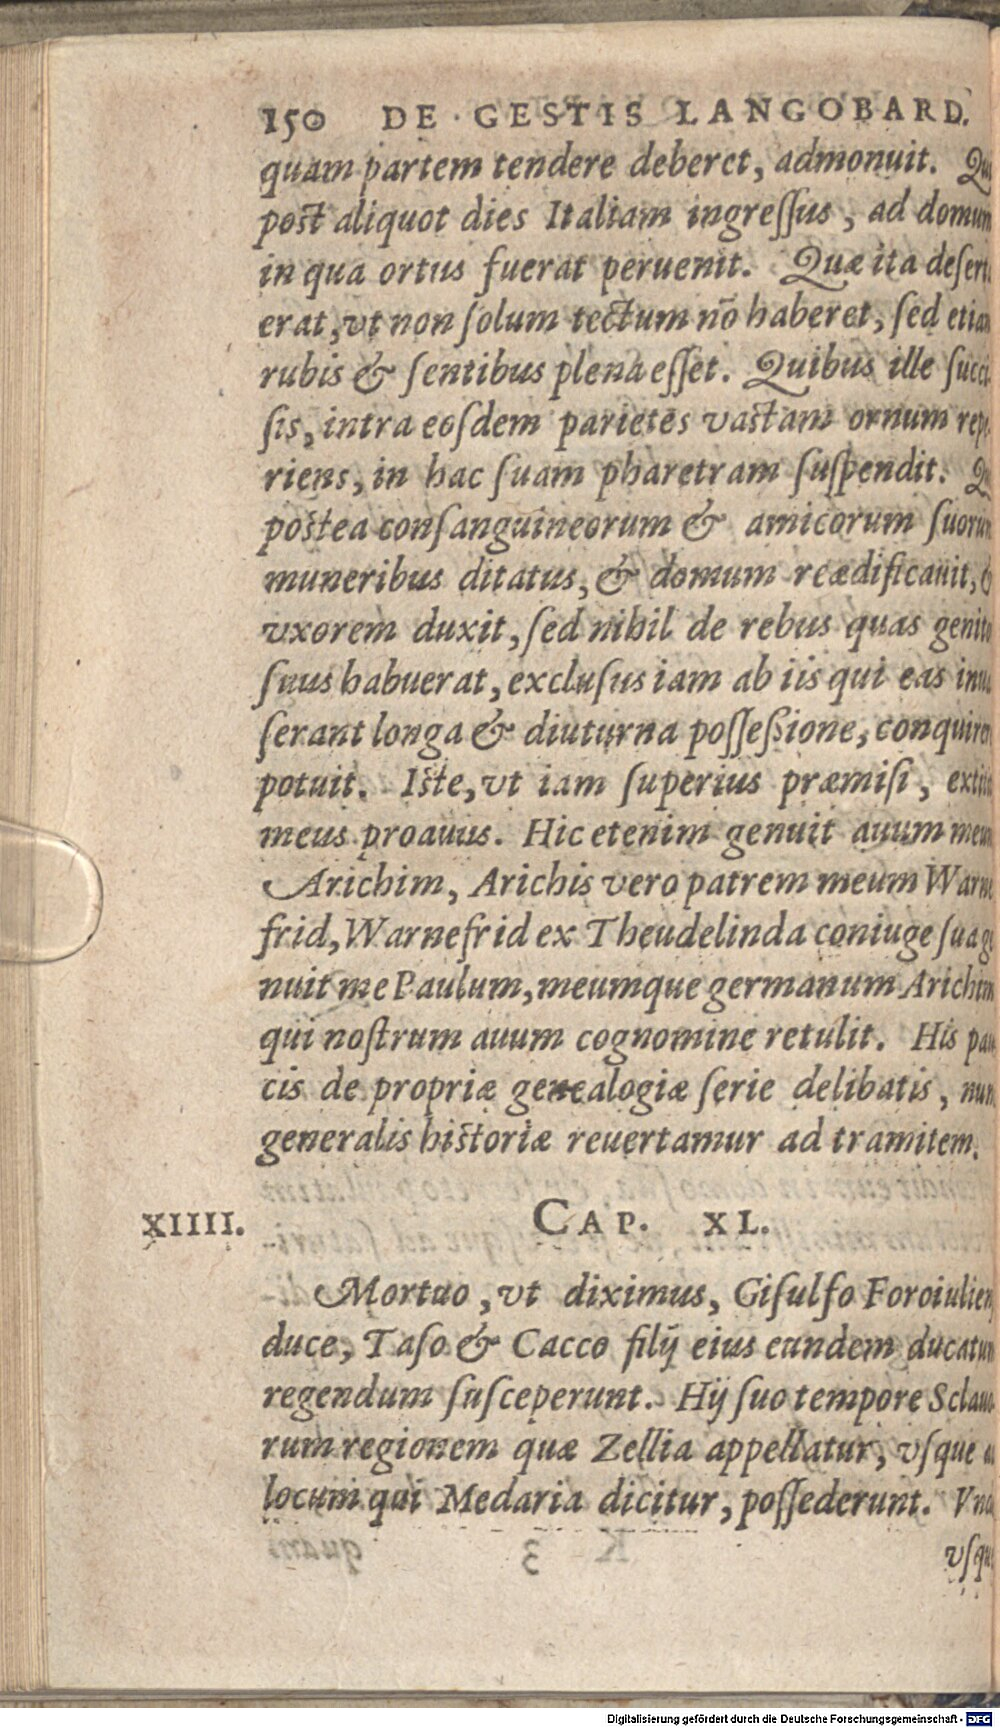 150 DE GESTIS LANGOBARD.
quam partem tendere deberet, admonuit.
post aliquot dies Italiam ingreſſus, ad domum
in qua ortus fuerat peruenit. Quæ ita deſert
erat, vt non ſolum tectum nō haberet, ſed etiam
rubis & ſentibus plena eſſet. Quibus ille ſucci-
ſis, intra eoſdem parietes vaſtam ornum repe-
riens, in hac ſuam pharetram ſuſpendit.
poſtea conſanguineorum & amicorum ſuorum
muneribus ditatus, & domum reædificauit,
vxorem duxit, ſed nihil de rebus quas genito
ſuus habuerat, excluſus iam ab iis qui eas inua
ſerant longa & diuturna poſſeſſione, conquirere
potuit. Iſte, vt iam ſuperius præmiſi, extitit
meus proauus. Hic etenim genuit auum meum
Arichim, Arichis vero patrem meum Warne
frid, Warnefrid ex Theudelinda coniuge ſua ge
nuit me Paulum, meumque germanum Arichim
qui noſtrum auum cognomine retulit. His pau
cis de propriæ genealogiæ ſerie delibatis, nunc
generalis hiſtoriæ reuertamur ad tramitem.
XIIII. CAP. XL.
Mortuo, vt diximus, Giſulfo Foroiulien
duce, Taſo & Cacco filij eius eundem ducatum
regendum ſuſceperunt. Hij ſuo tempore Sclauo
rum regionem quæ Zellia appellatur, vſque
locum qui Medaria dicitur, poſſederunt. Vnde
vſque
Digitalisierung gefördert durch die Deutsche Forschungsgemeinschaft - DFG